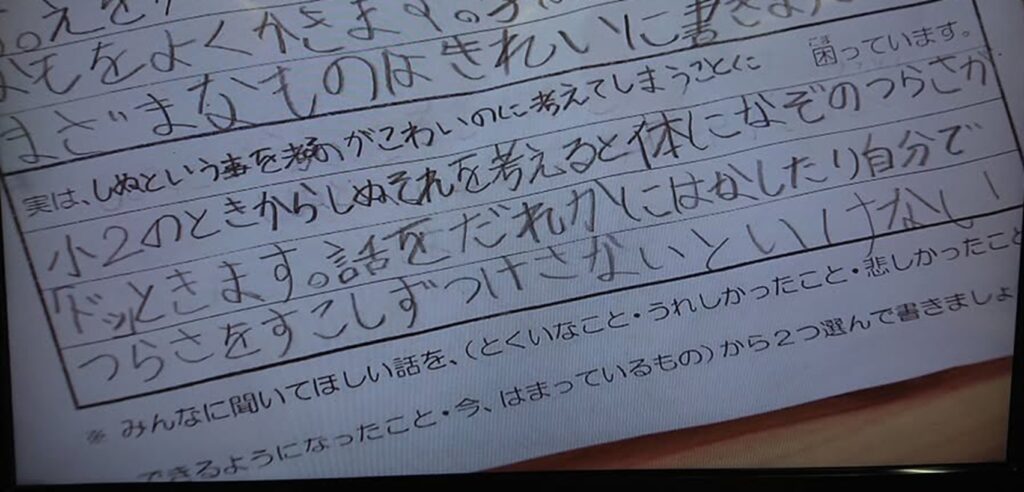 。えを
をよくかきます。
まざまなものはきれいに書きま
実は、しぬという事を考えるのがこわいのに考えてしまうことに
こま
困っています。
小2のときからしぬそれを考えると体になぞのつらさが
「ドッときます。話をだれかにはなしたり自分で
つらさをすこしずつけさないといけない
※ みんなに聞いてほしい話を、(とくいなこと・うれしかったこと・悲しかったこと
できるようになったこと・今、はまっているもの)から2つ選んで書きましょ